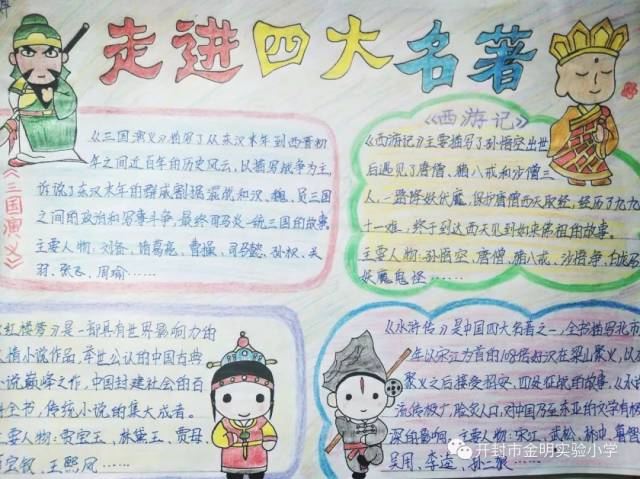 走进四大名著
《三国演义》
《三国演义》描写了从东汉末年到西晋初
年之间近百年的历史风云,以描写战争为主,
诉说了东汉末年的群雄割据混战和汉、魏、吴三国
之间的政治和军事斗争,最终司马炎一统三国的故事。
主要人物:刘备、诸葛亮、曹操、司马懿、孙权、关
羽、张飞、周瑜……
《西游记》
《西游记》主要描写了孙悟空出世
后遇见了唐僧、猪八戒和沙僧三
人,一路降妖伏魔,保护唐僧西天取经,经历了九九八
十一难,终于到达西天见到如来佛祖的故事。
主要人物:孙悟空、唐僧、猪八戒、沙悟净、白龙马
妖魔鬼怪……
《红楼梦》是一部具有世界影响力的
人情小说作品,举世公认的中国古典
小说巅峰之作,中国封建社会的百
科全书,传统小说的集大成者。
主要人物:贾宝玉、林黛玉、贾母、
薛宝钗、王熙凤……
《水浒传》是中国四大名著之一,全书描写北宋
年以宋江为首的108位好汉在梁山聚义,以
聚义之后接受招安、四处征战的故事。
流传极广,脍炙人口,对中国乃至东亚的文学有极
深的影响。主要人物:宋江、武松、林冲、鲁智
吴用、李逵、孙二娘……
开封市金明实验小学